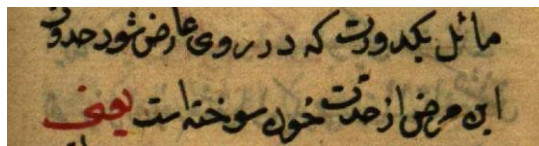 مائل بکدورت که در روی عارض شود حدوث
این مرض از حدت خون سوخته است یعنی